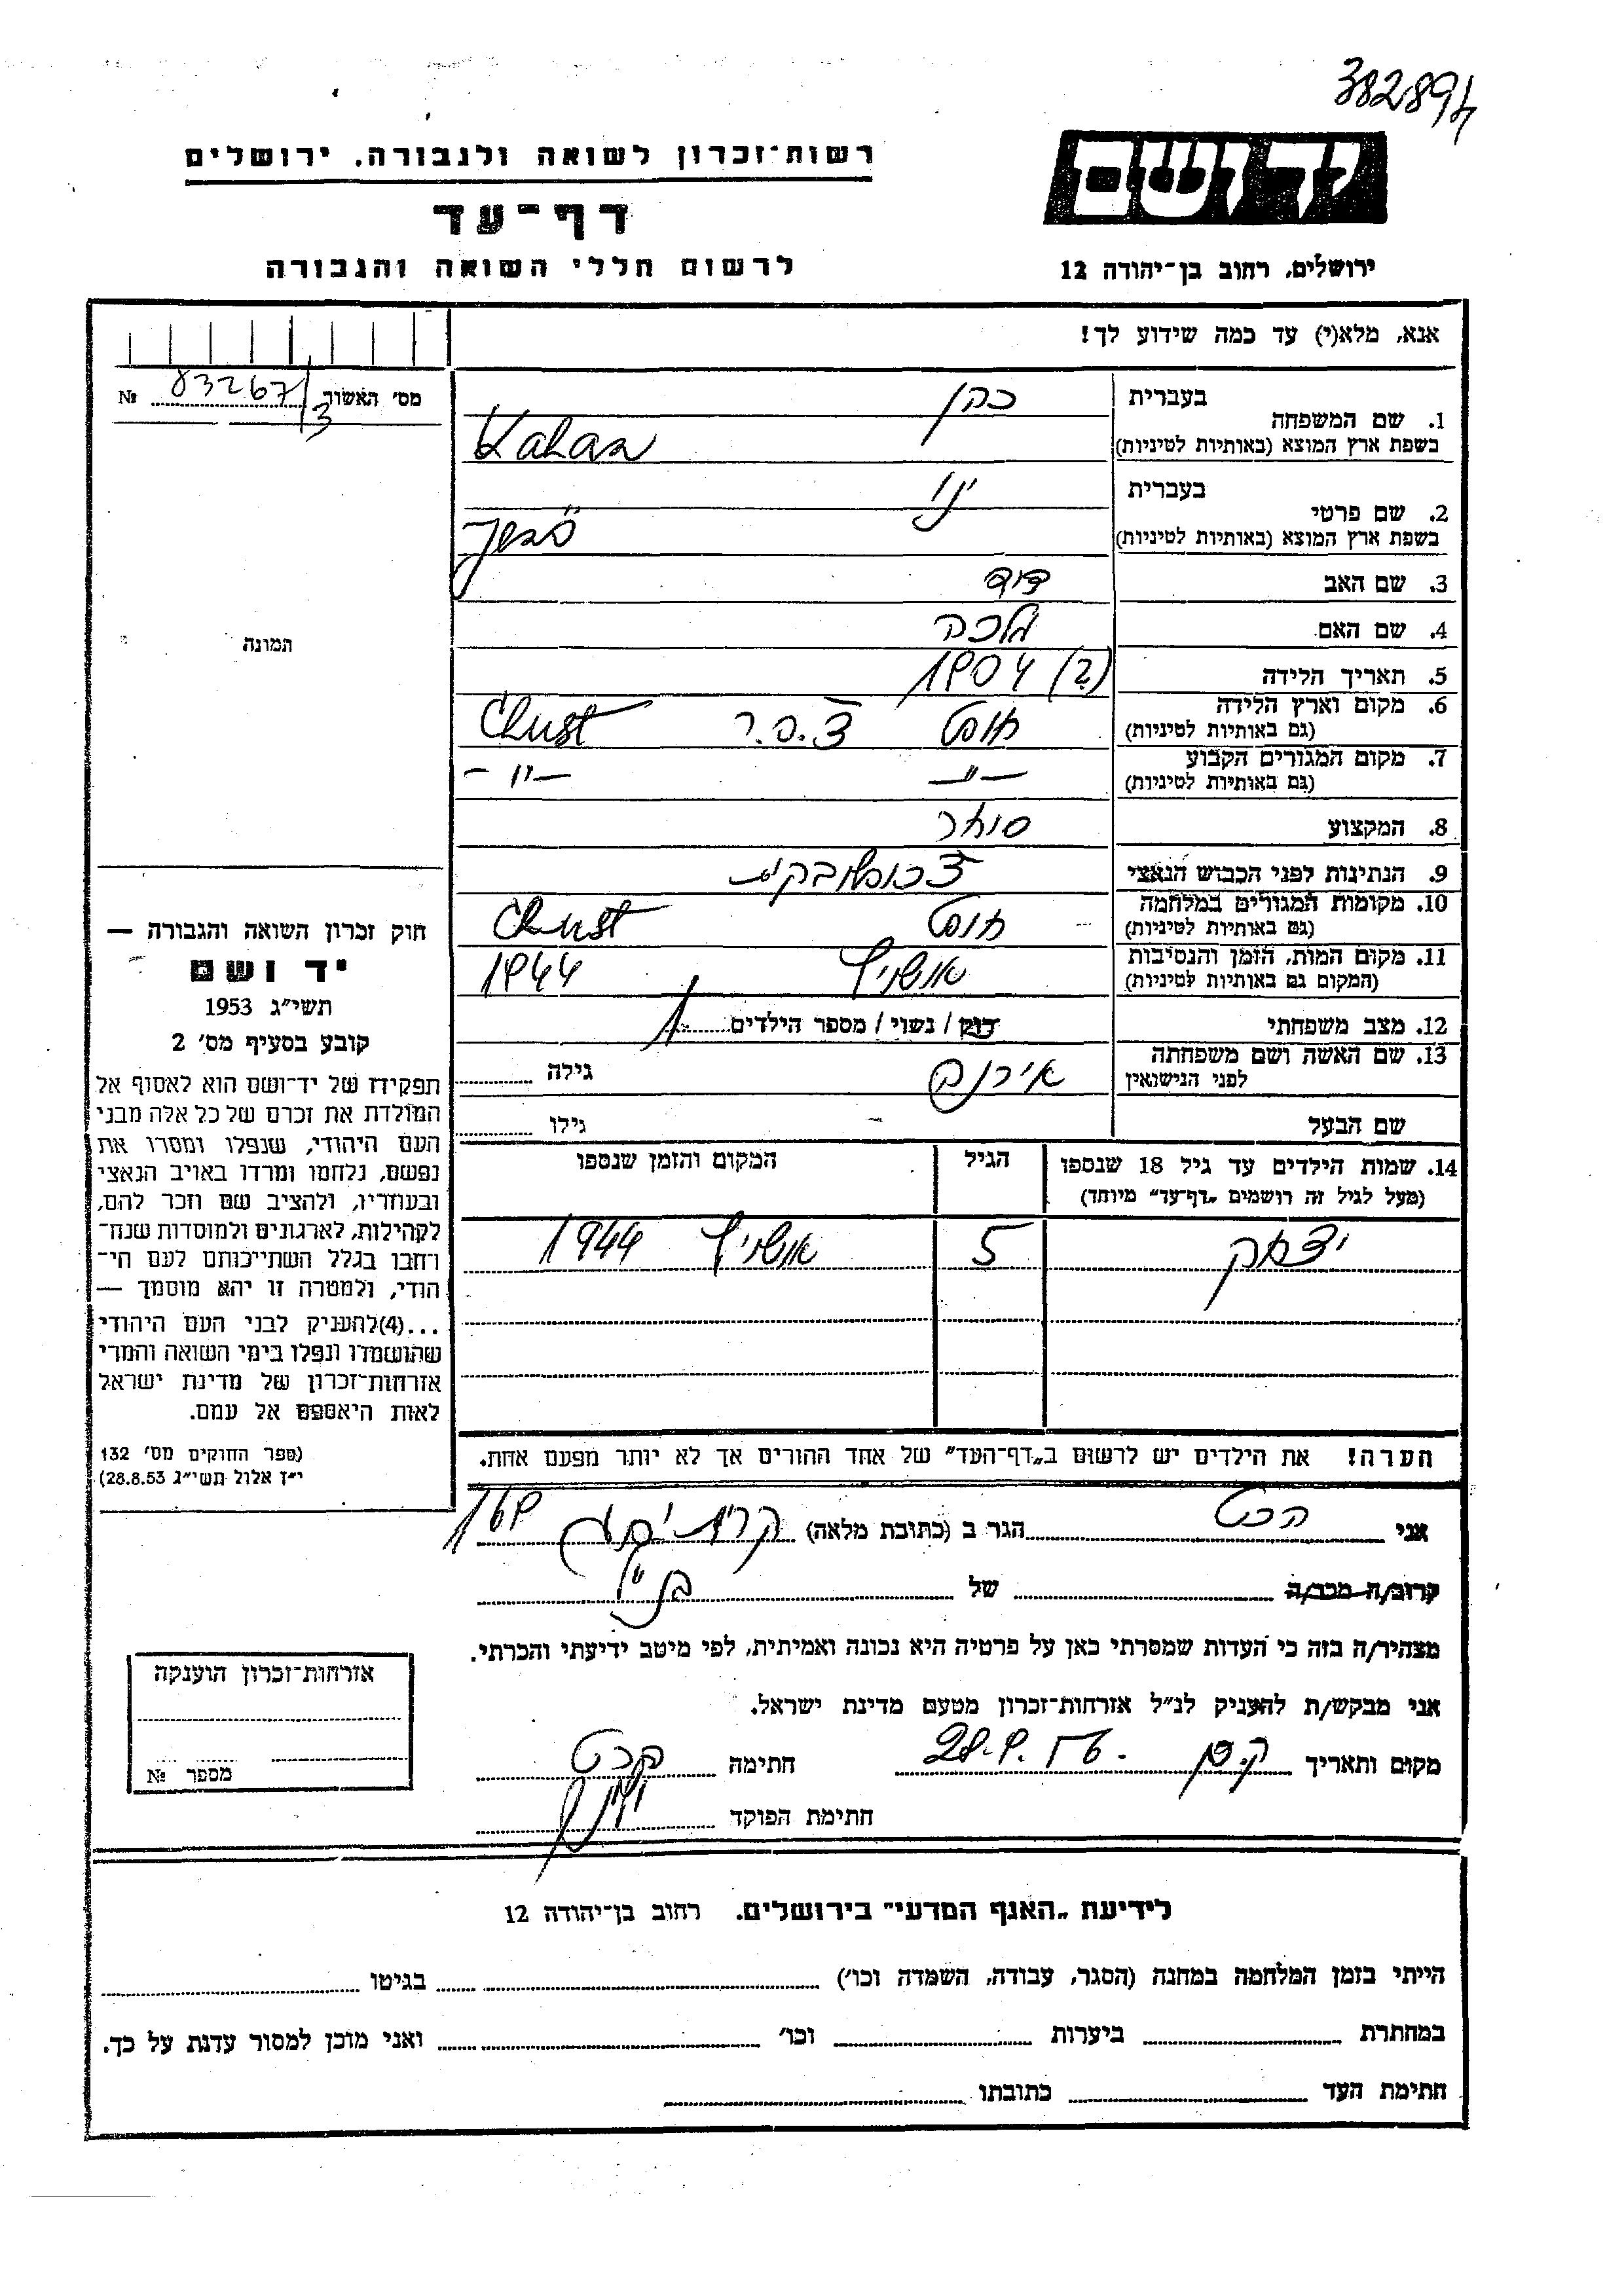 382894
רשות־זכרון לשואה ולגבורה. ירושלים
יד ושם
דף־עד
לרשום חללי השואה והגבורה
ירושלים, רחוב בן־יהודה 12
אנא, מלא(י) עד כמה שידוע לך!
מס׳ האשור 83267/3 №
1. שם המשפחה
בעברית כהן
בשפת ארץ המוצא (באותיות לטיניות) Kahan
2. שם פרטי
בעברית
בשפת ארץ המוצא (באותיות לטיניות)
3. שם האב דוד
4. שם האם מלכה
5. תאריך הלידה (?) 1904
6. מקום וארץ הלידה (גם באותיות לטיניות) חוסט צ.כ.ר Chust
7. מקום המגורים הקבוע (גם באותיות לטיניות) –״– –״–
8. המקצוע סוחר
9. הנתינות לפני הכבוש הנאצי
10. מקומות המגורים במלחמה (גם באותיות לטיניות) חוסט Chust
11. מקום המות, הזמן והנסיבות (המקום גם באותיות לטיניות) אושויץ 1944
12. מצב משפחתי רוק / נשוי / מספר הילדים 1
13. שם האשה ושם משפחתה לפני הנישואין אירנה גילה
שם הבעל – גילו
14. שמות הילדים עד גיל 18 שנספו
(מעל לגיל זה רושמים „דף־עד״ מיוחד)
הגיל
המקום והזמן שנספו
יצחק 5 אושויץ 1944
הערה! את הילדים יש לרשום ב„דף־העד״ של אחד ההורים אך לא יותר מפעם אחת.
התמונה
חוק זכרון השואה והגבורה —
יד ושם
תשי״ג 1953
קובע בסעיף מס׳ 2
תפקידו של יד־ושם הוא לאסוף אל
המולדת את זכרם של כל אלה מבני
העם היהודי, שנפלו ומסרו את
נפשם, נלחמו ומרדו באויב הנאצי
ובעוזריו, ולהציב שם וזכר להם,
לקהילות, לארגונים ולמוסדות שנח־
רבו בגלל השתייכותם לעם הי־
הודי, ולמטרה זו יהא מוסמך —
...(4)להעניק לבני העם היהודי
שהושמדו ונפלו בימי השואה והמרי
אזרחות־זכרון של מדינת ישראל
לאות היאספם אל עמם.
(ספר החוקים מס׳ 132
י״ז אלול תשי״ג 28.8.53)
אני הגר ב (כתובת מלאה) קרית 169
קרוב/ה מכר/ה של
מצהיר/ה בזה כי העדות שמסרתי כאן על פרטיה היא נכונה ואמיתית, לפי מיטב ידיעתי והכרתי.
אני מבקש/ת להעניק לנ״ל אזרחות־זכרון מטעם מדינת ישראל.
מקום ותאריך 28.9.56 חתימה
חתימת הפוקד
אזרחות־זכרון הוענקה
מספר №
לידיעת „האגף המדעי״ בירושלים. רחוב בן־יהודה 12
הייתי בזמן המלחמה במחנה (הסגר, עבודה, השמדה וכו׳) בגיטו
במחתרת ביערות וכו׳ ואני מוכן למסור עדות על כך.
חתימת העד כתובתו